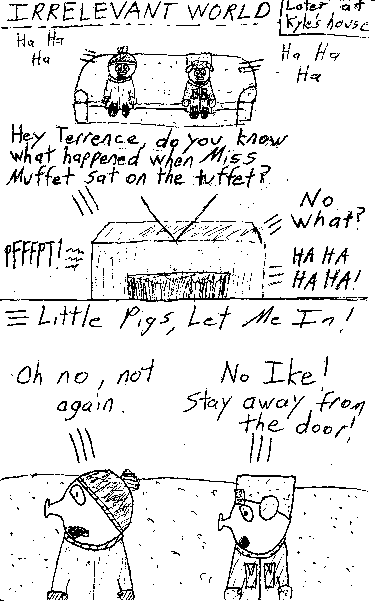 IRRELEVANT WORLD
Later at
Kyle's house
Ha Ha
Ha
Ha Ha
Ha
Hey Terrence, do you know
what happened when Miss
Muffet sat on the tuffet?
No
what?
PFFFPT!
HA HA
HA HA!
Little Pigs, Let Me In!
Oh no, not
again.
No Ike!
Stay away from
the door!